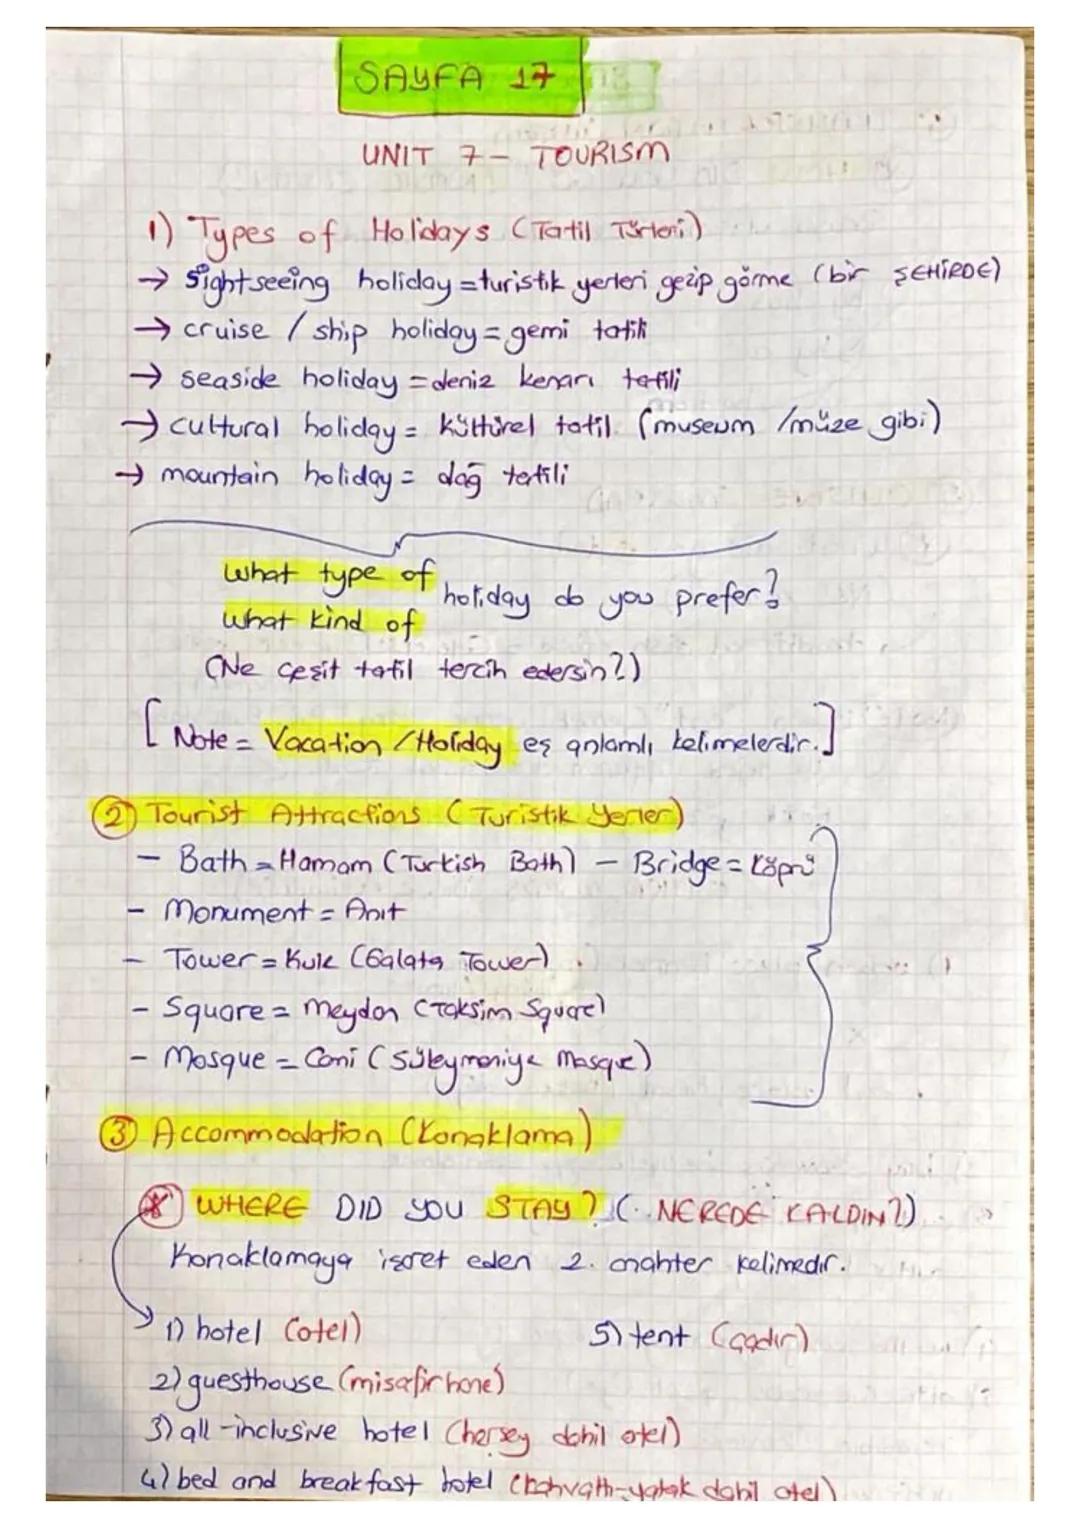 SAYFA 17
UNIT 7 - TOURISM
1) Types of Holidays (Tatil Türleri)
→ Sightseeing holiday = turistik yerleri gezip görme (bir ŞEHİRDE)
→ cruise / ship holiday = gemi tatili
→ seaside holiday = deniz kenarı tatili
→ cultural holiday = kültürel tatil (museum /müze gibi)
→ mountain holiday = dağ tatili
What type of
What kind of
holiday do you prefer?
(Ne çeşit tatil tercih edersin?)
[Note = Vacation /Holiday eş anlamlı kelimelerdir.]
2 Tourist Attractions (Turistik Yerler)
- Bath = Hamam (Turkish Bath) - Bridge = Köprü
- Monument = Anıt
- Tower = Kule (Galata Tower)
- Square = Meydan (Taksim Square)
- Mosque = Cami (Süleymaniye Mosque)
3 Accommodation (Konaklama)
* WHERE DID YOU STAY? (NEREDE KALDIN?)
Konaklamaya işaret eden 2. anahter kelimedir.
1) hotel (otel)
5) tent (çadır)
2) guesthouse (misafirhane)
3) all-inclusive hotel (herşey dahil otel)
4) bed and breakfast hotel (kahvaltı-yatak dahil otel)